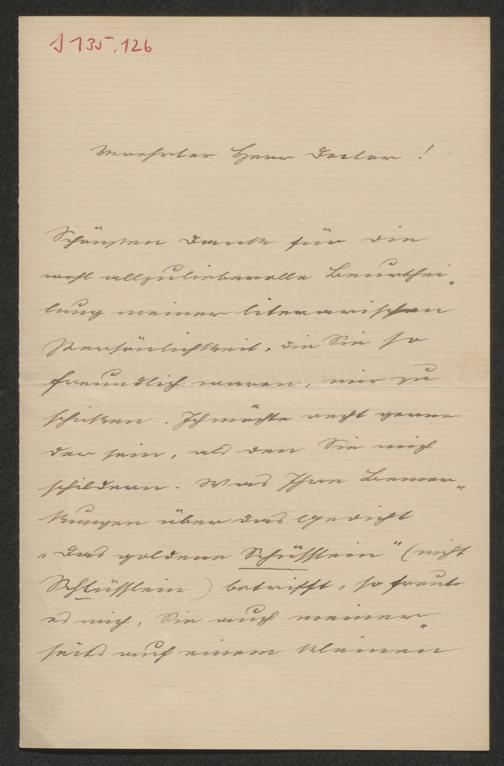 J 135.126
Verehrter Herr Doctor!
Schönsten Dank für die
wohl allzuliebevolle Beurthei„
lung meiner literarischen
Persönlichkeit, die Sie so
freundlich waren, mir zu
schicken. Ich möchte recht gerne
der sein, als den Sie mich
schildern. Was Ihre Bemer„
kungen über das Gedicht
„Das goldene Schüsslein" (nicht
Schlüsslein) betrifft, so freut
es mich, Sie auch meiner„
seits auf einem kleinen